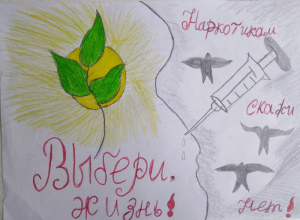 Наркотикам
скажи
нет!
Выбери
жизнь!